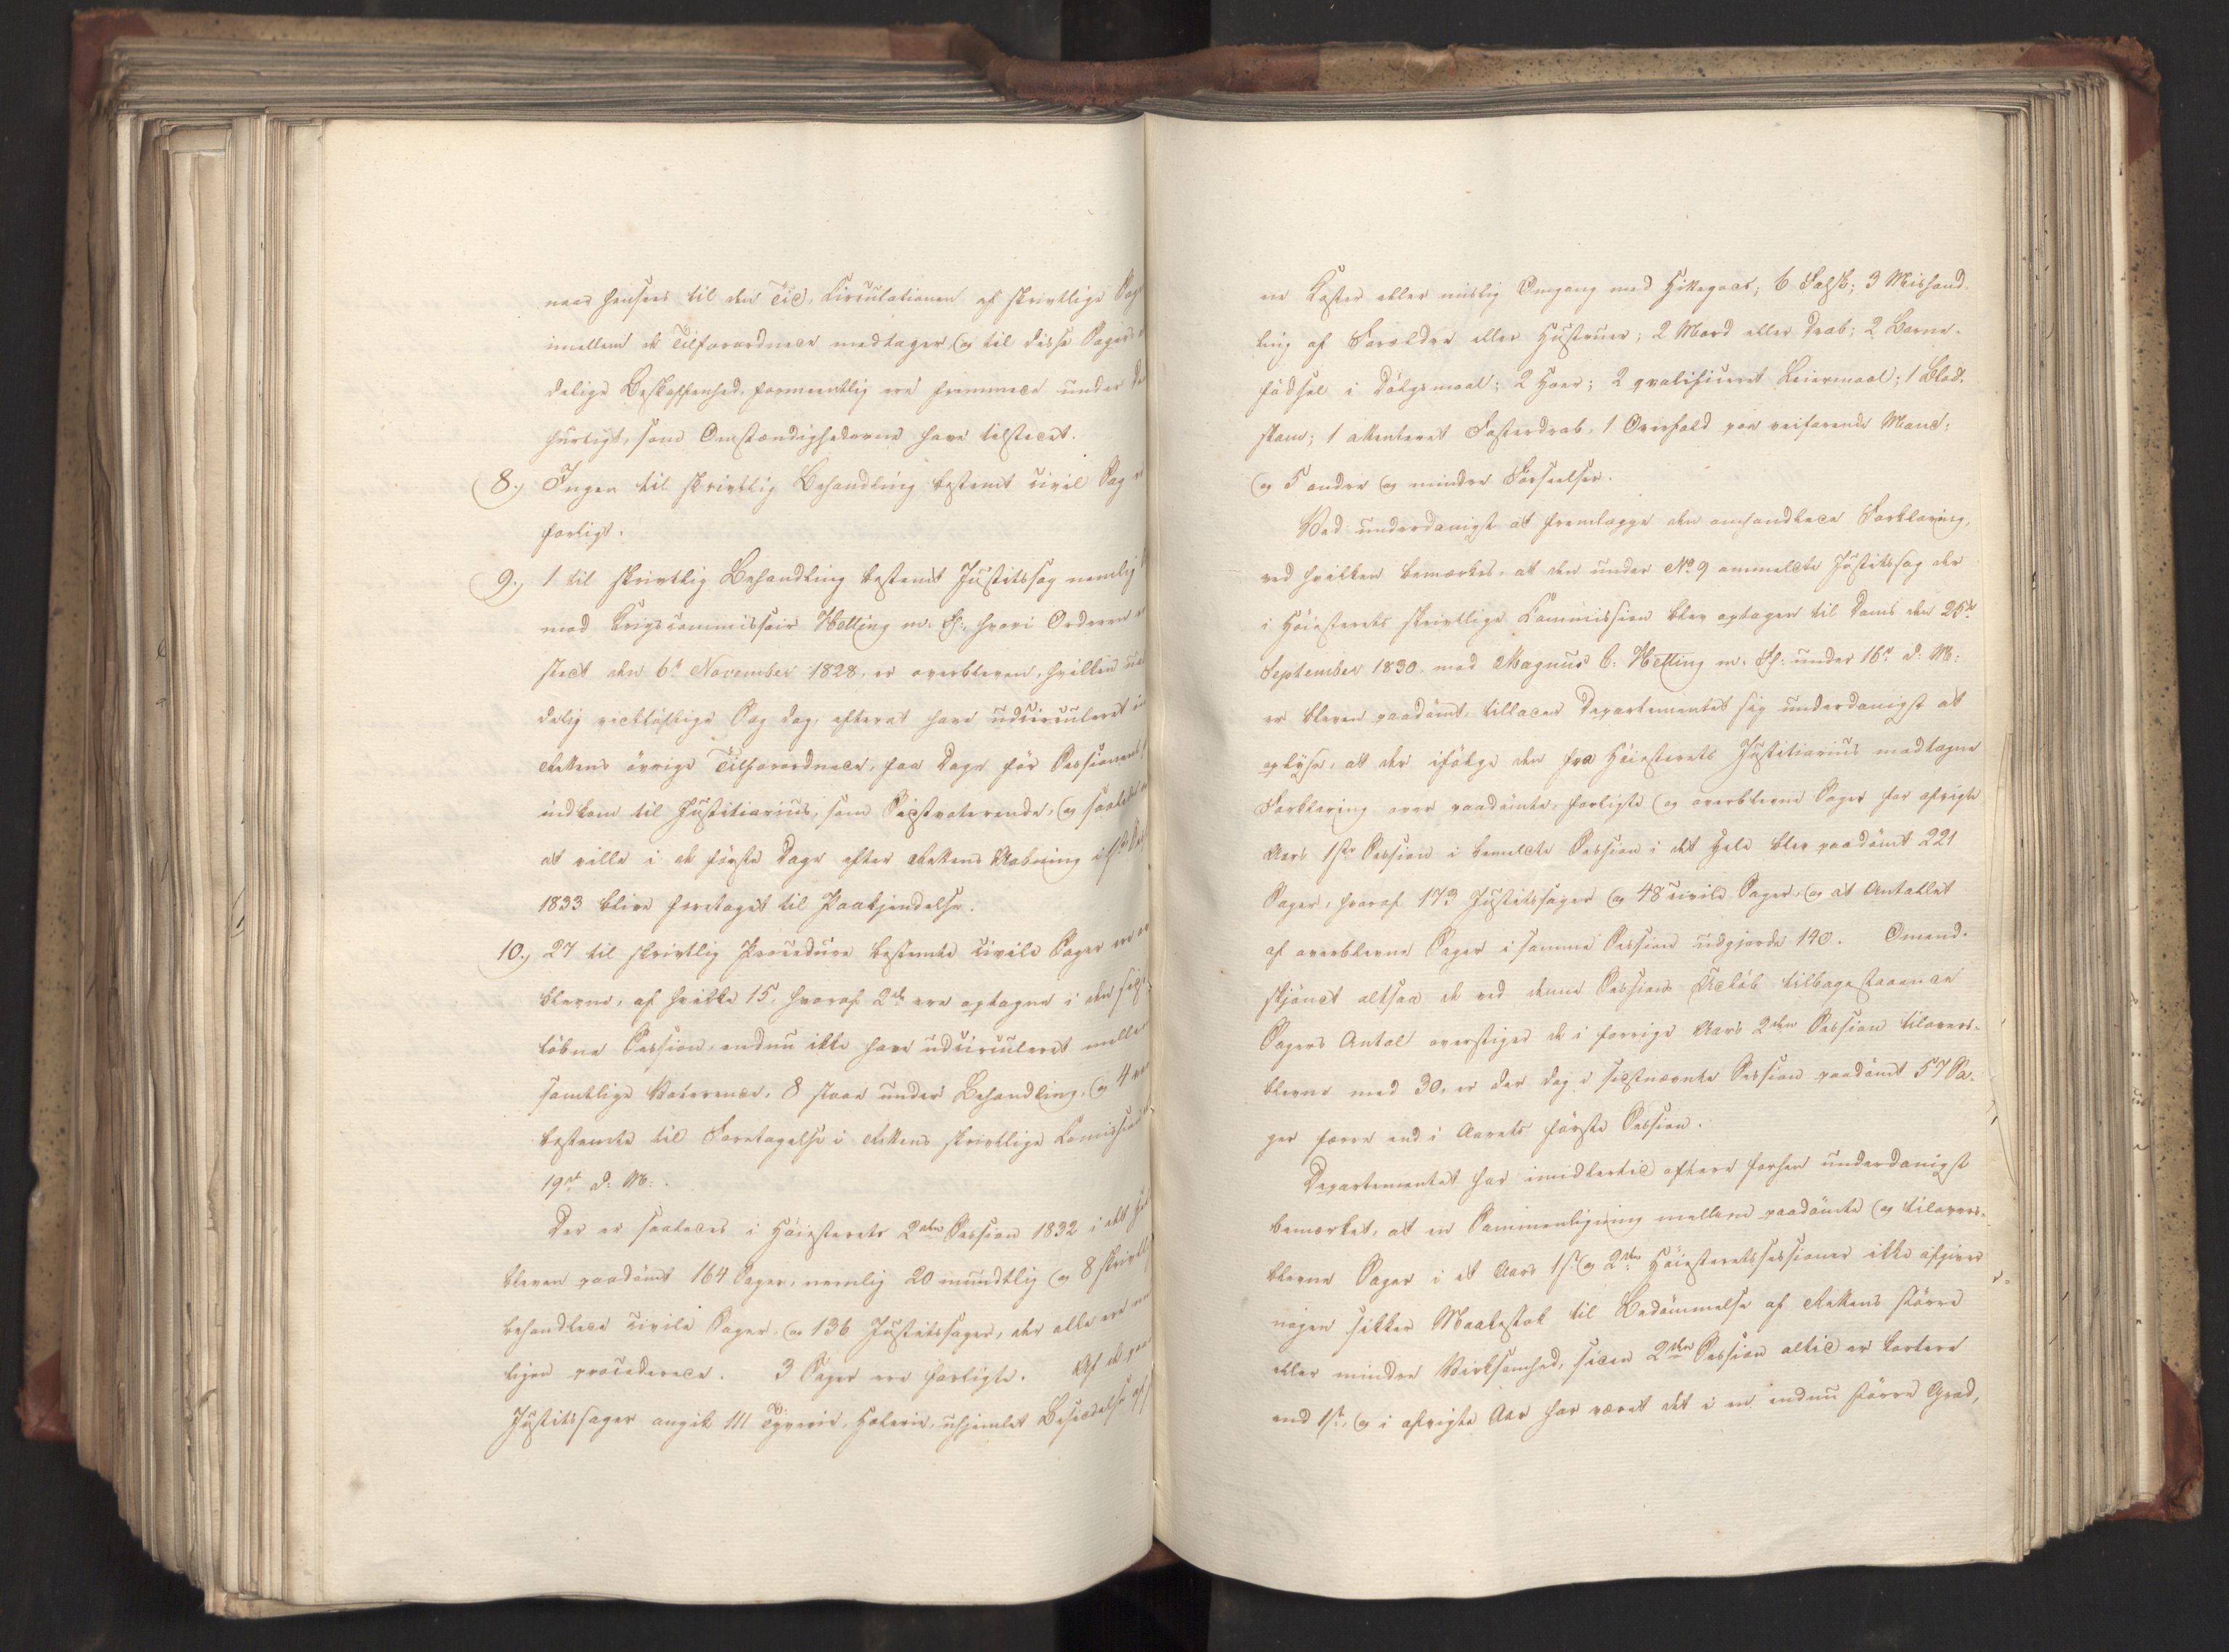 naar henses til den Tid, Circulationen af skrivtlige Sag
imellem de Tilforordnede medtager, og til disse Sagers
delige Beskaffenhed, formeentlig ere fremmede under
hurtigt, som Omstændighederne have tilstedt.
8.) Ingen til skrivtlig Behandling bestemt civil Sag
forligt.
9.) 1 til skrivtlig Behandling bestemt Justitssag nemlig
mod Krigscommissair Hetting m: Fl:, hvori Ordren
stedt den 6te November 1828, er overbleven, hvilken
delig vidtløftige Sag dog, efterat have udcirculeret
Rettens øvrige Tilforordnede, faa Dage før Sessionens
indkom til Justitiarius, som Sidstvoterende, og saaledes
at ville i de første Dage efter Rettens Aabning i
1833 blive foretaget til Paakjendelse.
10.) 27 til skrivtlig Procedure bestemte civile Sager ere
blevne, af hvilke 15, hvoraf 2de ere optagne i den
løbne Session, endnu ikke have udcirculeret mellem
samtlige Voterende, 8 staae under Behandling, og 4
bestemte til Foretagelse i Rettens skrivtlige Comission
19de d: M:.
Der er saaledes i Høiesterets 2den Session 1832 i det
bleven paadømt 164 Sager, nemlig 20 mundtlig og 8 skrivtl
behandlede civile Sager, og 136 Justitssager, der alle ere
ligen procederede. 3 Sager ere forligte. Af de
Justitssager angik 111 Tyverie, Hælerie, uhjemlet Besiddelse af
ne Koster eller mislig Omgang med Hittegods; 6 Falsk; 3 Mishand-
ling af Forældre eller Hustruer; 2 Mord eller Drab; 2 Barne-
fødsel i Dølgsmaal; 2 Hoer; 2 qvalificeret Leiermaal; 1 Blod-
skam; 1 attenteret Fosterdrab, 1 Overfald paa veifarende Mand;
og 5 andre og mindre Forseelser.
Ved underdanigst at fremlægge den omhandlede Forklaring,
ved hvilken bemærkes, at den under No 9 anmeldte Justitssag der
i Høiesterets skrivtlige Commission blev optagen til Doms den 25de
September 1830 mod Magnus C: Hetting m: Fl: under 16de d: M:
er bleven paadømt, tillader Departementet sig underdanigst at
oplyse, at der ifølge den fra Høiesterets Justitiarius modtagne
Forklaring over paadømte, forligte og overblevne Sager for afvigte
Aars 1ste Session i bemeldte Session i det Hele blev paadømt 221
Sager, hvoraf 173 Justitssager og 48 civile Sager, og at Antallet
af overblevne Sager i samme Session udgjorde 140. Omend-
skjøndt altsaa de ved denne Sessions Udløb tilbagestaaende
Sagers Antal overstiger de i forrige Aars 2den Session tilovers-
blevne med 30, er der dog i sidstnævnte Session paadømt 57 Sa-
ger færre end i Aarets første Session.
Departementet har imidlertid oftere forhen underdanigst
bemærket, at en Sammenligning mellem paadømte og tilovers-
blevne Sager i et Aars 1ste og 2den Høiesteretssessioner ikke afgiver
nogen sikker Maalestok til Bedømmelse af Rettens større
eller mindre Virksomhed, siden 2den Session altid er kortere
end 1ste, og i afvigte Aar har været det i en endnu større Grad,